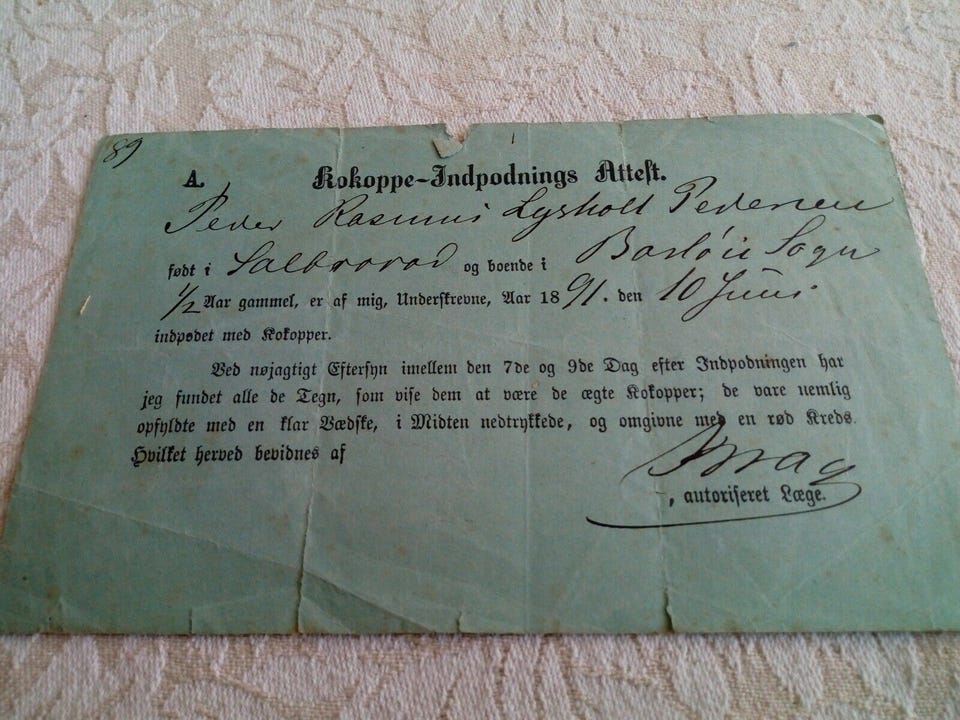 89
A. Kokoppe-Indpodnings Attest.
Peder Rasmus Lysholt Pedersen
født i Salbrovad og boende i Barløse Sogn
1/2 Aar gammel, er af mig, Underskrevne, Aar 1891. den 10 Juni
indpodet med Kokopper.
Ved nøjagtigt Eftersyn imellem den 7de og 9de Dag efter Indpodningen har
jeg fundet alle de Tegn, som vise dem at være de ægte Kokopper; de vare nemlig
opfyldte med en klar Vædske, i Midten nedtrykkede, og omgivne med en rød Kreds.
Hvilket herved bevidnes af
, autoriseret Læge.